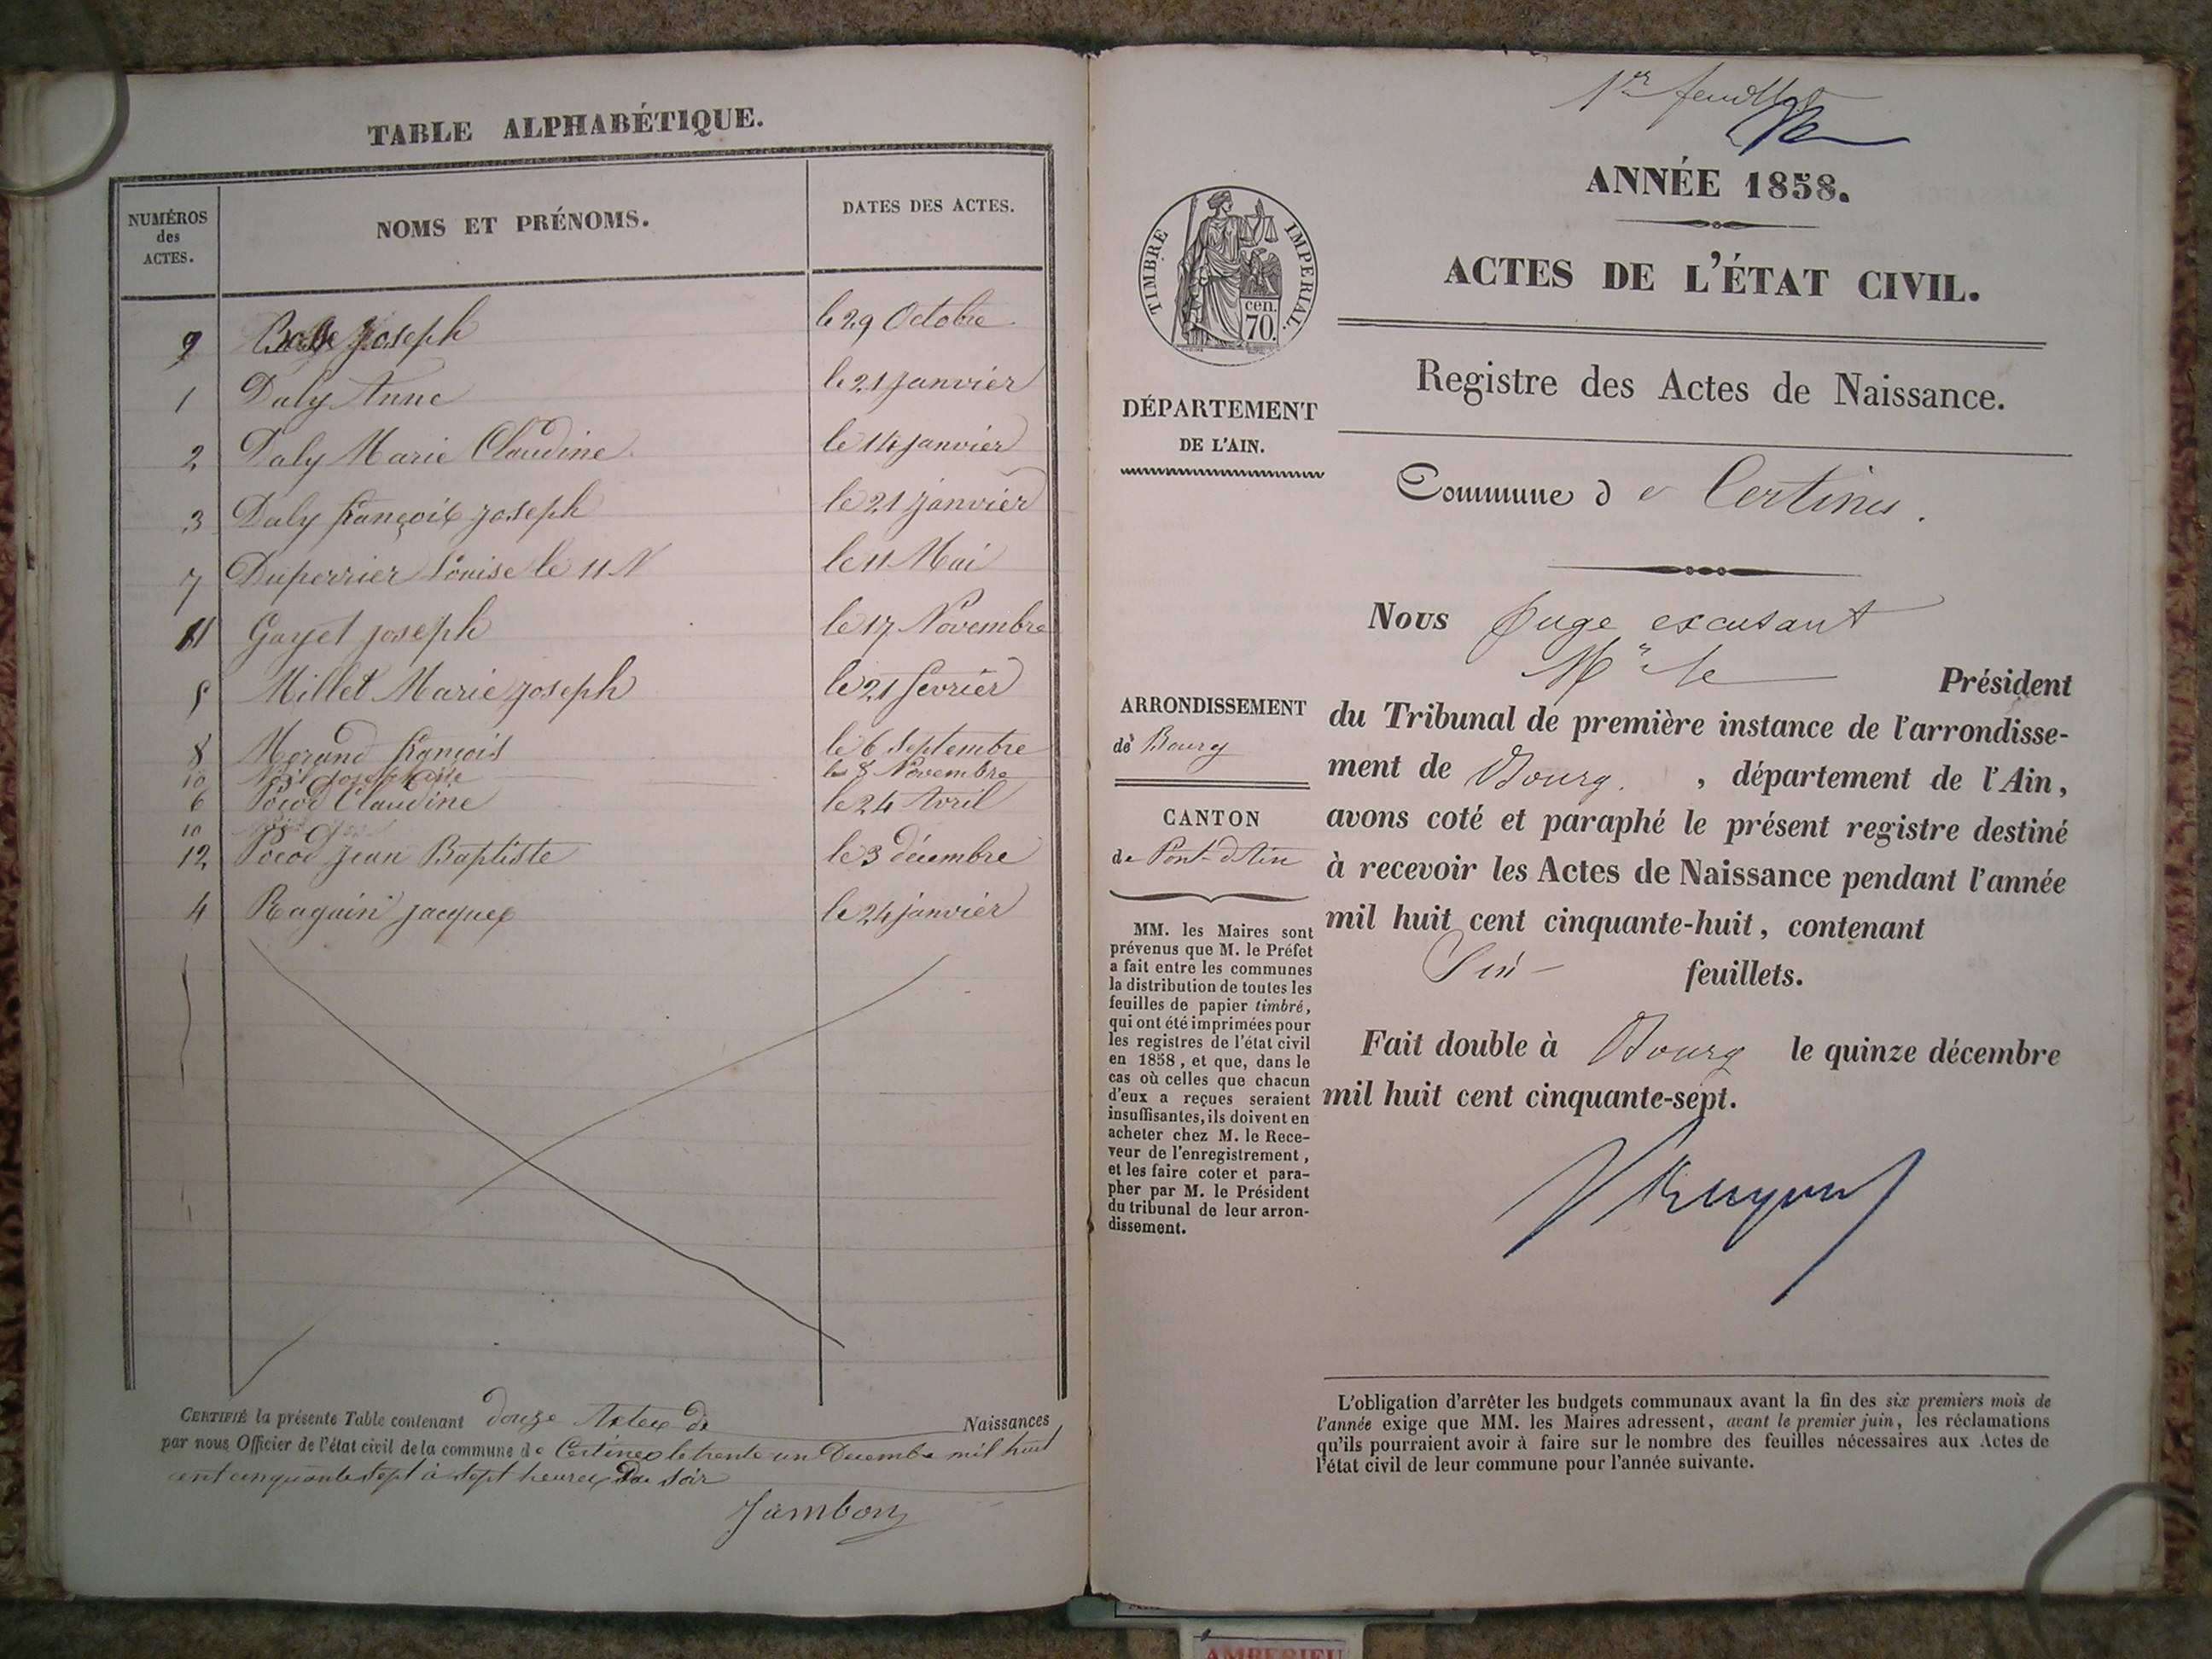 TABLE ALPHABÉTIQUE.
NUMÉROS
des
ACTES.
NOMS ET PRÉNOMS.
DATES DES ACTES.
9 Joseph le 29 Octobre
1 Daly Anne le 21 janvier
2 Daly Marie Claudine le 14 janvier
3 Daly françois joseph le 21 janvier
7 Duperrier Louise le 11 N le 11 Mai
11 Gayet joseph le 17 Novembre
5 Millet Marie joseph le 21 fevrier
8 Morand françois le 6 septembre
10 le 8 Novembre
6 Pocod Claudine le 24 Avril
10
12 Pocod jean Baptiste le 3 décembre
4 Ragain jacques le 24 janvier
CERTIFIÉ la présente Table contenant douze Actes de Naissances
par nous Officier de l'état civil de la commune de Certines le trente un Decembe mil huit
cent cinquante sept à sept heures Du soir
Jambon
1er feuillet
ANNÉE 1858.
ACTES DE L'ÉTAT CIVIL.
TIMBRE IMPERIAL.
cen.
70.
Registre des Actes de Naissance.
DÉPARTEMENT
DE L'AIN.
Commune de Certines.
Nous Juge excusant
Mr le Président
du Tribunal de première instance de l'arrondisse-
ment de Bourg, département de l'Ain,
avons coté et paraphé le présent registre destiné
à recevoir les Actes de Naissance pendant l'année
mil huit cent cinquante-huit, contenant
feuillets.
Fait double à Bourg le quinze décembre
mil huit cent cinquante-sept.
ARRONDISSEMENT
de Bourg
CANTON
de Pont-d'Ain
MM. les Maires sont
prévenus que M. le Préfet
a fait entre les communes
la distribution de toutes les
feuilles de papier timbré,
qui ont été imprimées pour
les registres de l'état civil
en 1858, et que, dans le
cas où celles que chacun
d'eux a reçues seraient
insuffisantes, ils doivent en
acheter chez M. le Rece-
veur de l'enregistrement,
et les faire coter et para-
pher par M. le Président
du tribunal de leur arron-
dissement.
L'obligation d'arrêter les budgets communaux avant la fin des six premiers mois de
l'année exige que MM. les Maires adressent, avant le premier juin, les réclamations
qu'ils pourraient avoir à faire sur le nombre des feuilles nécessaires aux Actes de
l'état civil de leur commune pour l'année suivante.
AMBERIEU